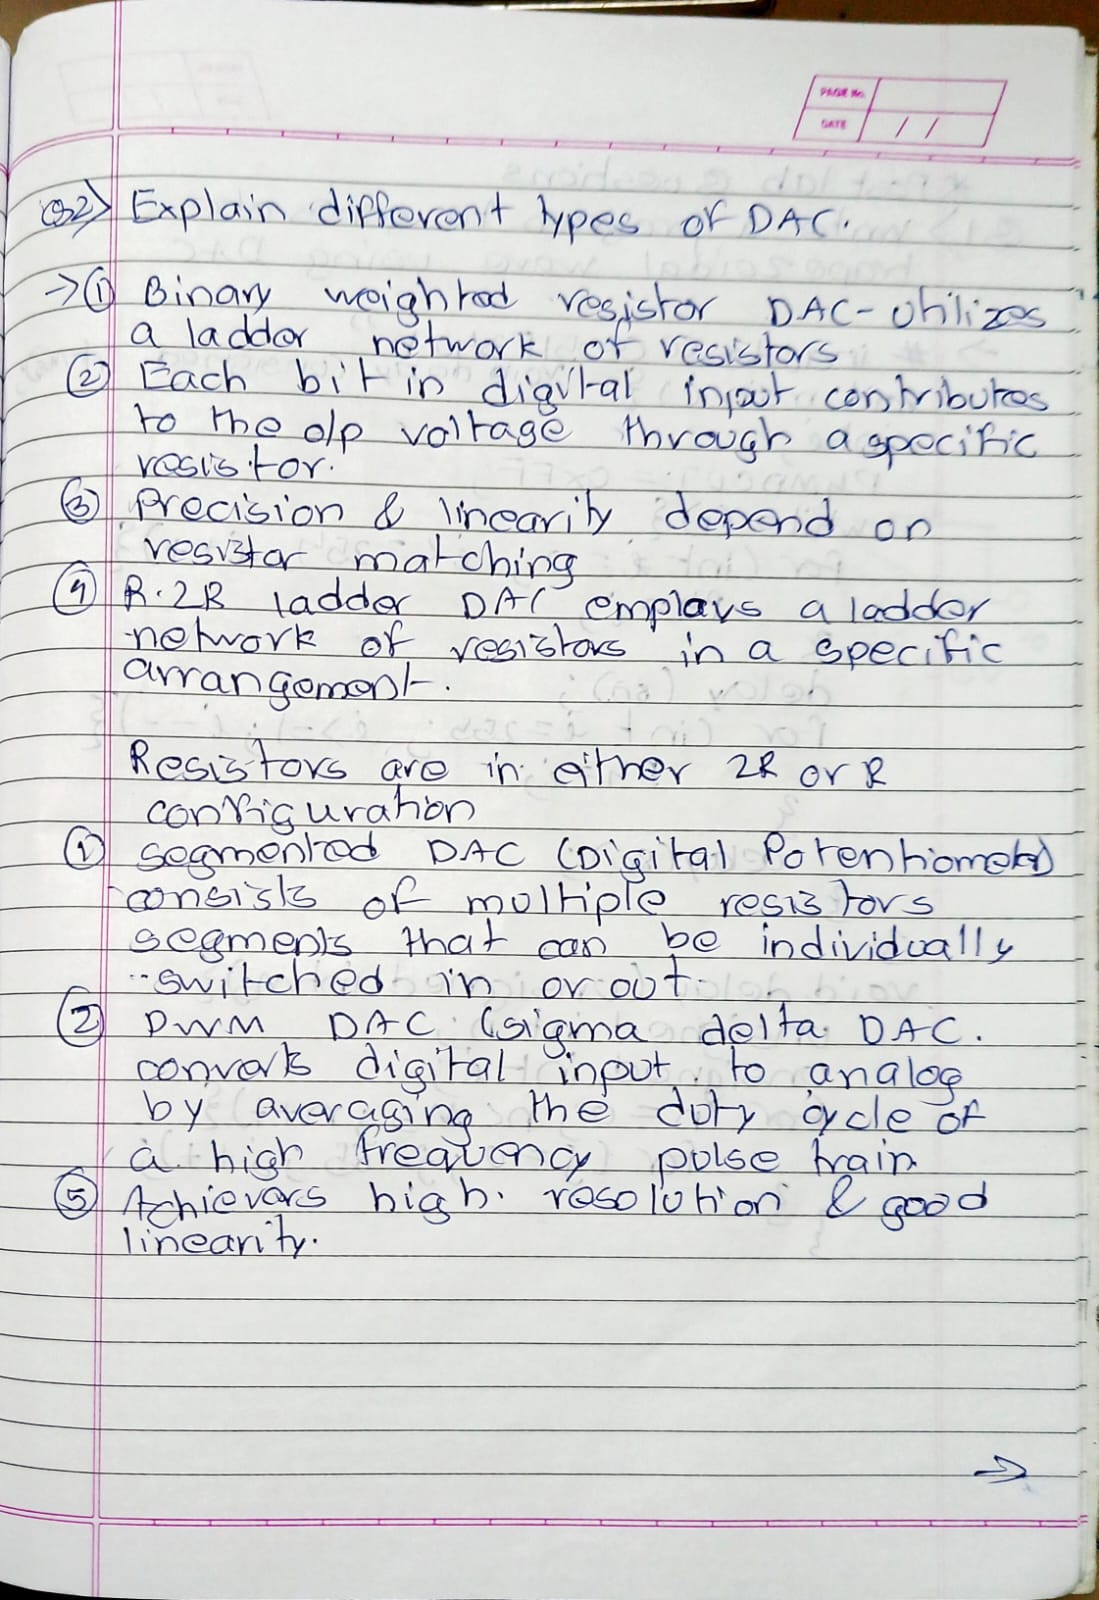 PAGE No.
DATE / /
Q2) Explain different types of DAC.
→ ① Binary weighted resistor DAC - Utilizes
a ladder network of resistors
② Each bit in digital input contributes
to the o/p voltage through a specific
resistor.
③ Precision & linearity depend on
resistor matching
④ R-2R ladder DAC employs a ladder
network of resistors in a specific
arrangement.
Resistors are in either 2R or R
configuration
① segmented DAC (Digital Potentiometer)
consists of multiple resistors
segments that can be individually
switched in or out.
② PWM DAC (sigma delta DAC.
converts digital input to analog
by averaging the duty cycle of
a high frequency pulse train
⑤ Achievers high resolution & good
linearity.
→